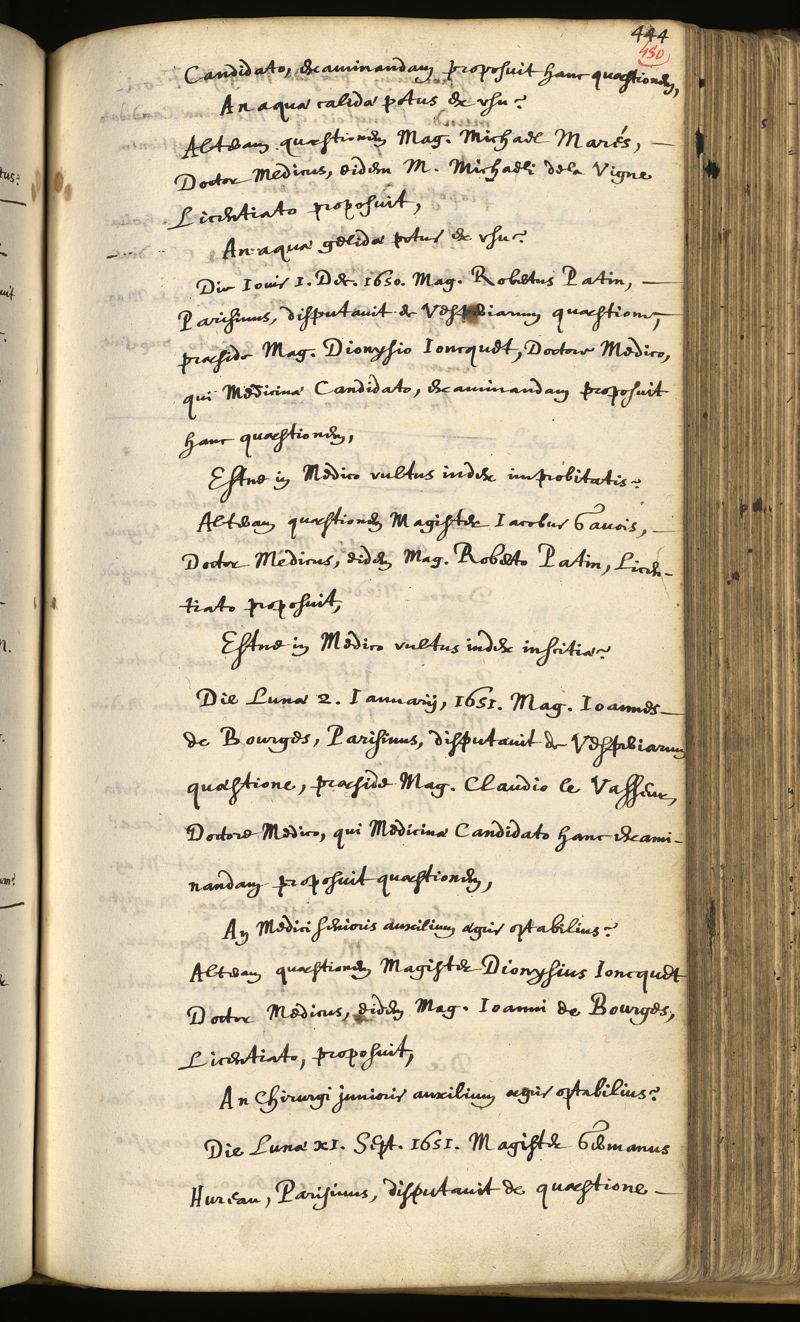 444
450
Candidato, examinandam proposuit hanc quæstionem,
An aquæ calidæ potus ex usu?
Alteram quæstionem Mag. Michael Marés, —
Doctor Medicus, eidem M. Michaeli de la Vigne
Licentiato proposuit,
An aquæ gelidæ potus ex usu?
Die Iovis 1. Dec. 1650. Mag. Robertus Patin, —
Parisinus, disputavit de Vesperiarum quæstione, —
præside Mag. Dionysio Ioncquet, Doctore Medico,
qui Medicinæ Candidato, examinandam proposuit
hanc quæstionem,
Estne in Medico vultus index improbitatis?
Alteram quæstionem Magister Iacobus Gavois, —
Doctor Medicus, eidem Mag. Roberto Patin, Licen-
tiato proposuit,
Estne in Medico vultus index inscitiæ?
Die Lunæ 2. Ianuarij, 1651. Mag. Ioannes —
de Bourges, Parisinus, disputavit de Vesperiarum
quæstione, præside Mag. Claudio le Vasseur,
Doctore Medico, qui Medicinæ Candidato hanc exami-
nandam proposuit quæstionem,
An Medici senioris auxilium ægris optabilius?
Alteram quæstionem Magister Dionysius Ioncquet
Doctor Medicus, eidem Mag. Ioanni de Bourges,
Licentiato, proposuit,
An Chirurgi junioris auxilium ægris optabilius?
Die Lunæ XI. Sept. 1651. Magister Germanus
Hureau, Parisinus, disputavit de quæstione —